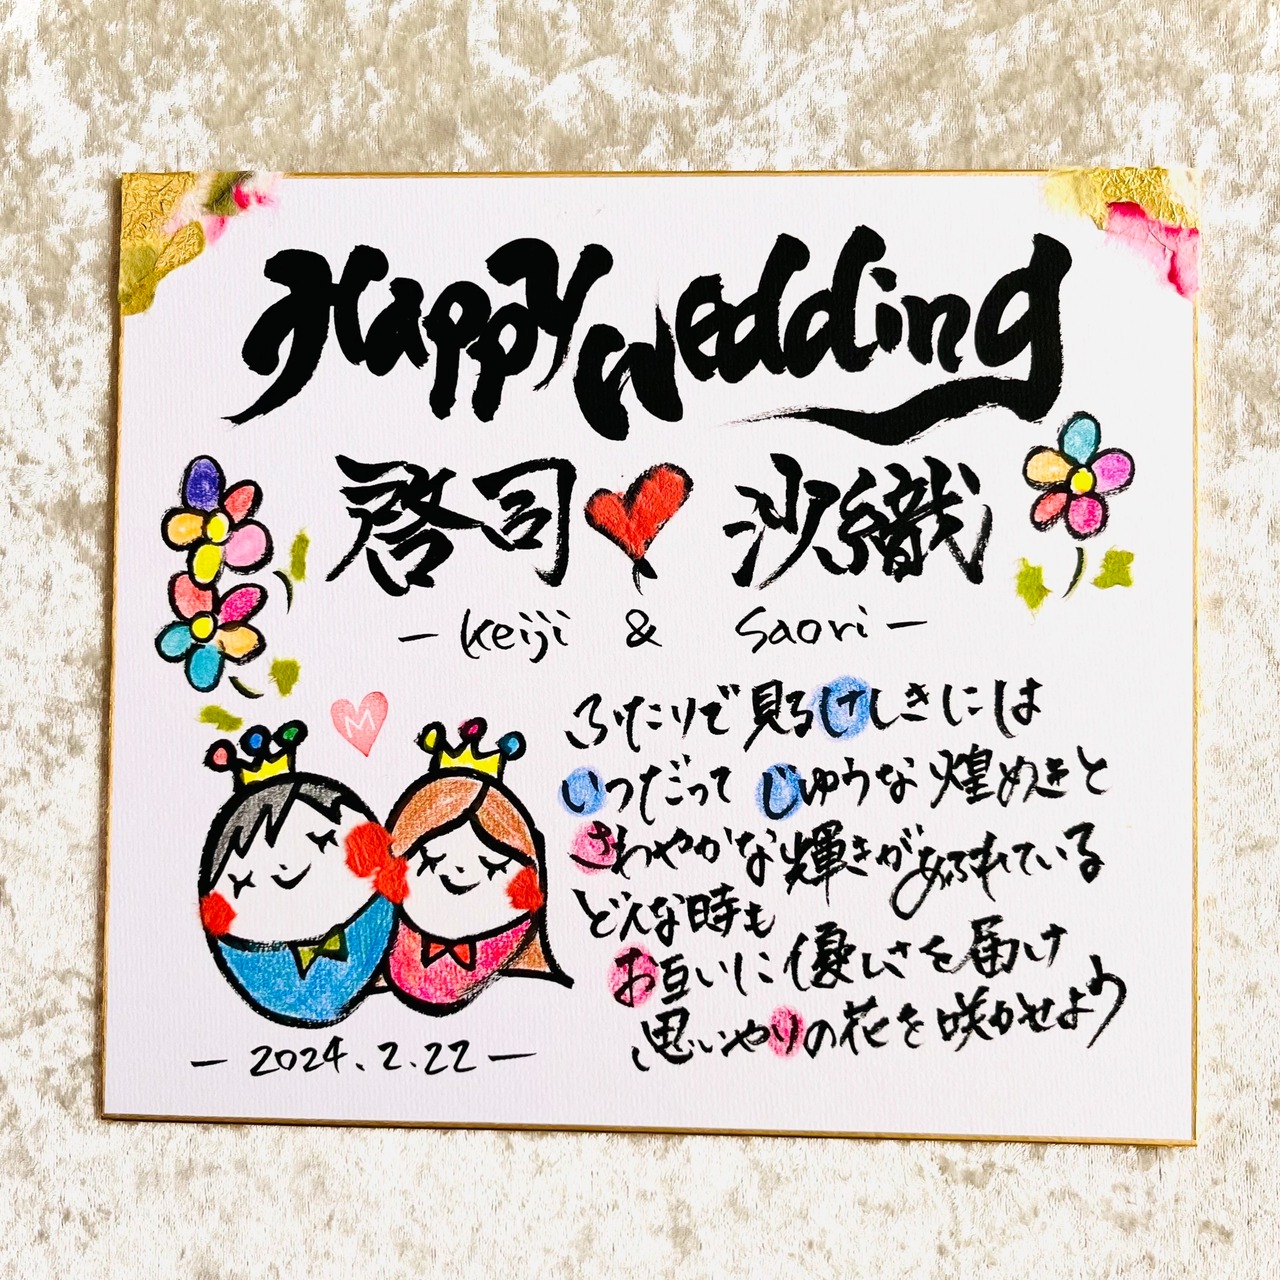 Happy Wedding
啓司 沙織
- keiji & saori -
ふたりで見るけしきには
いつだって じゆうな 煌めきと
さわやかな輝きがあふれている
どんな時も
お互いに優しさを届け
思いやりの花を咲かせよう
M
- 2024.2.22 -